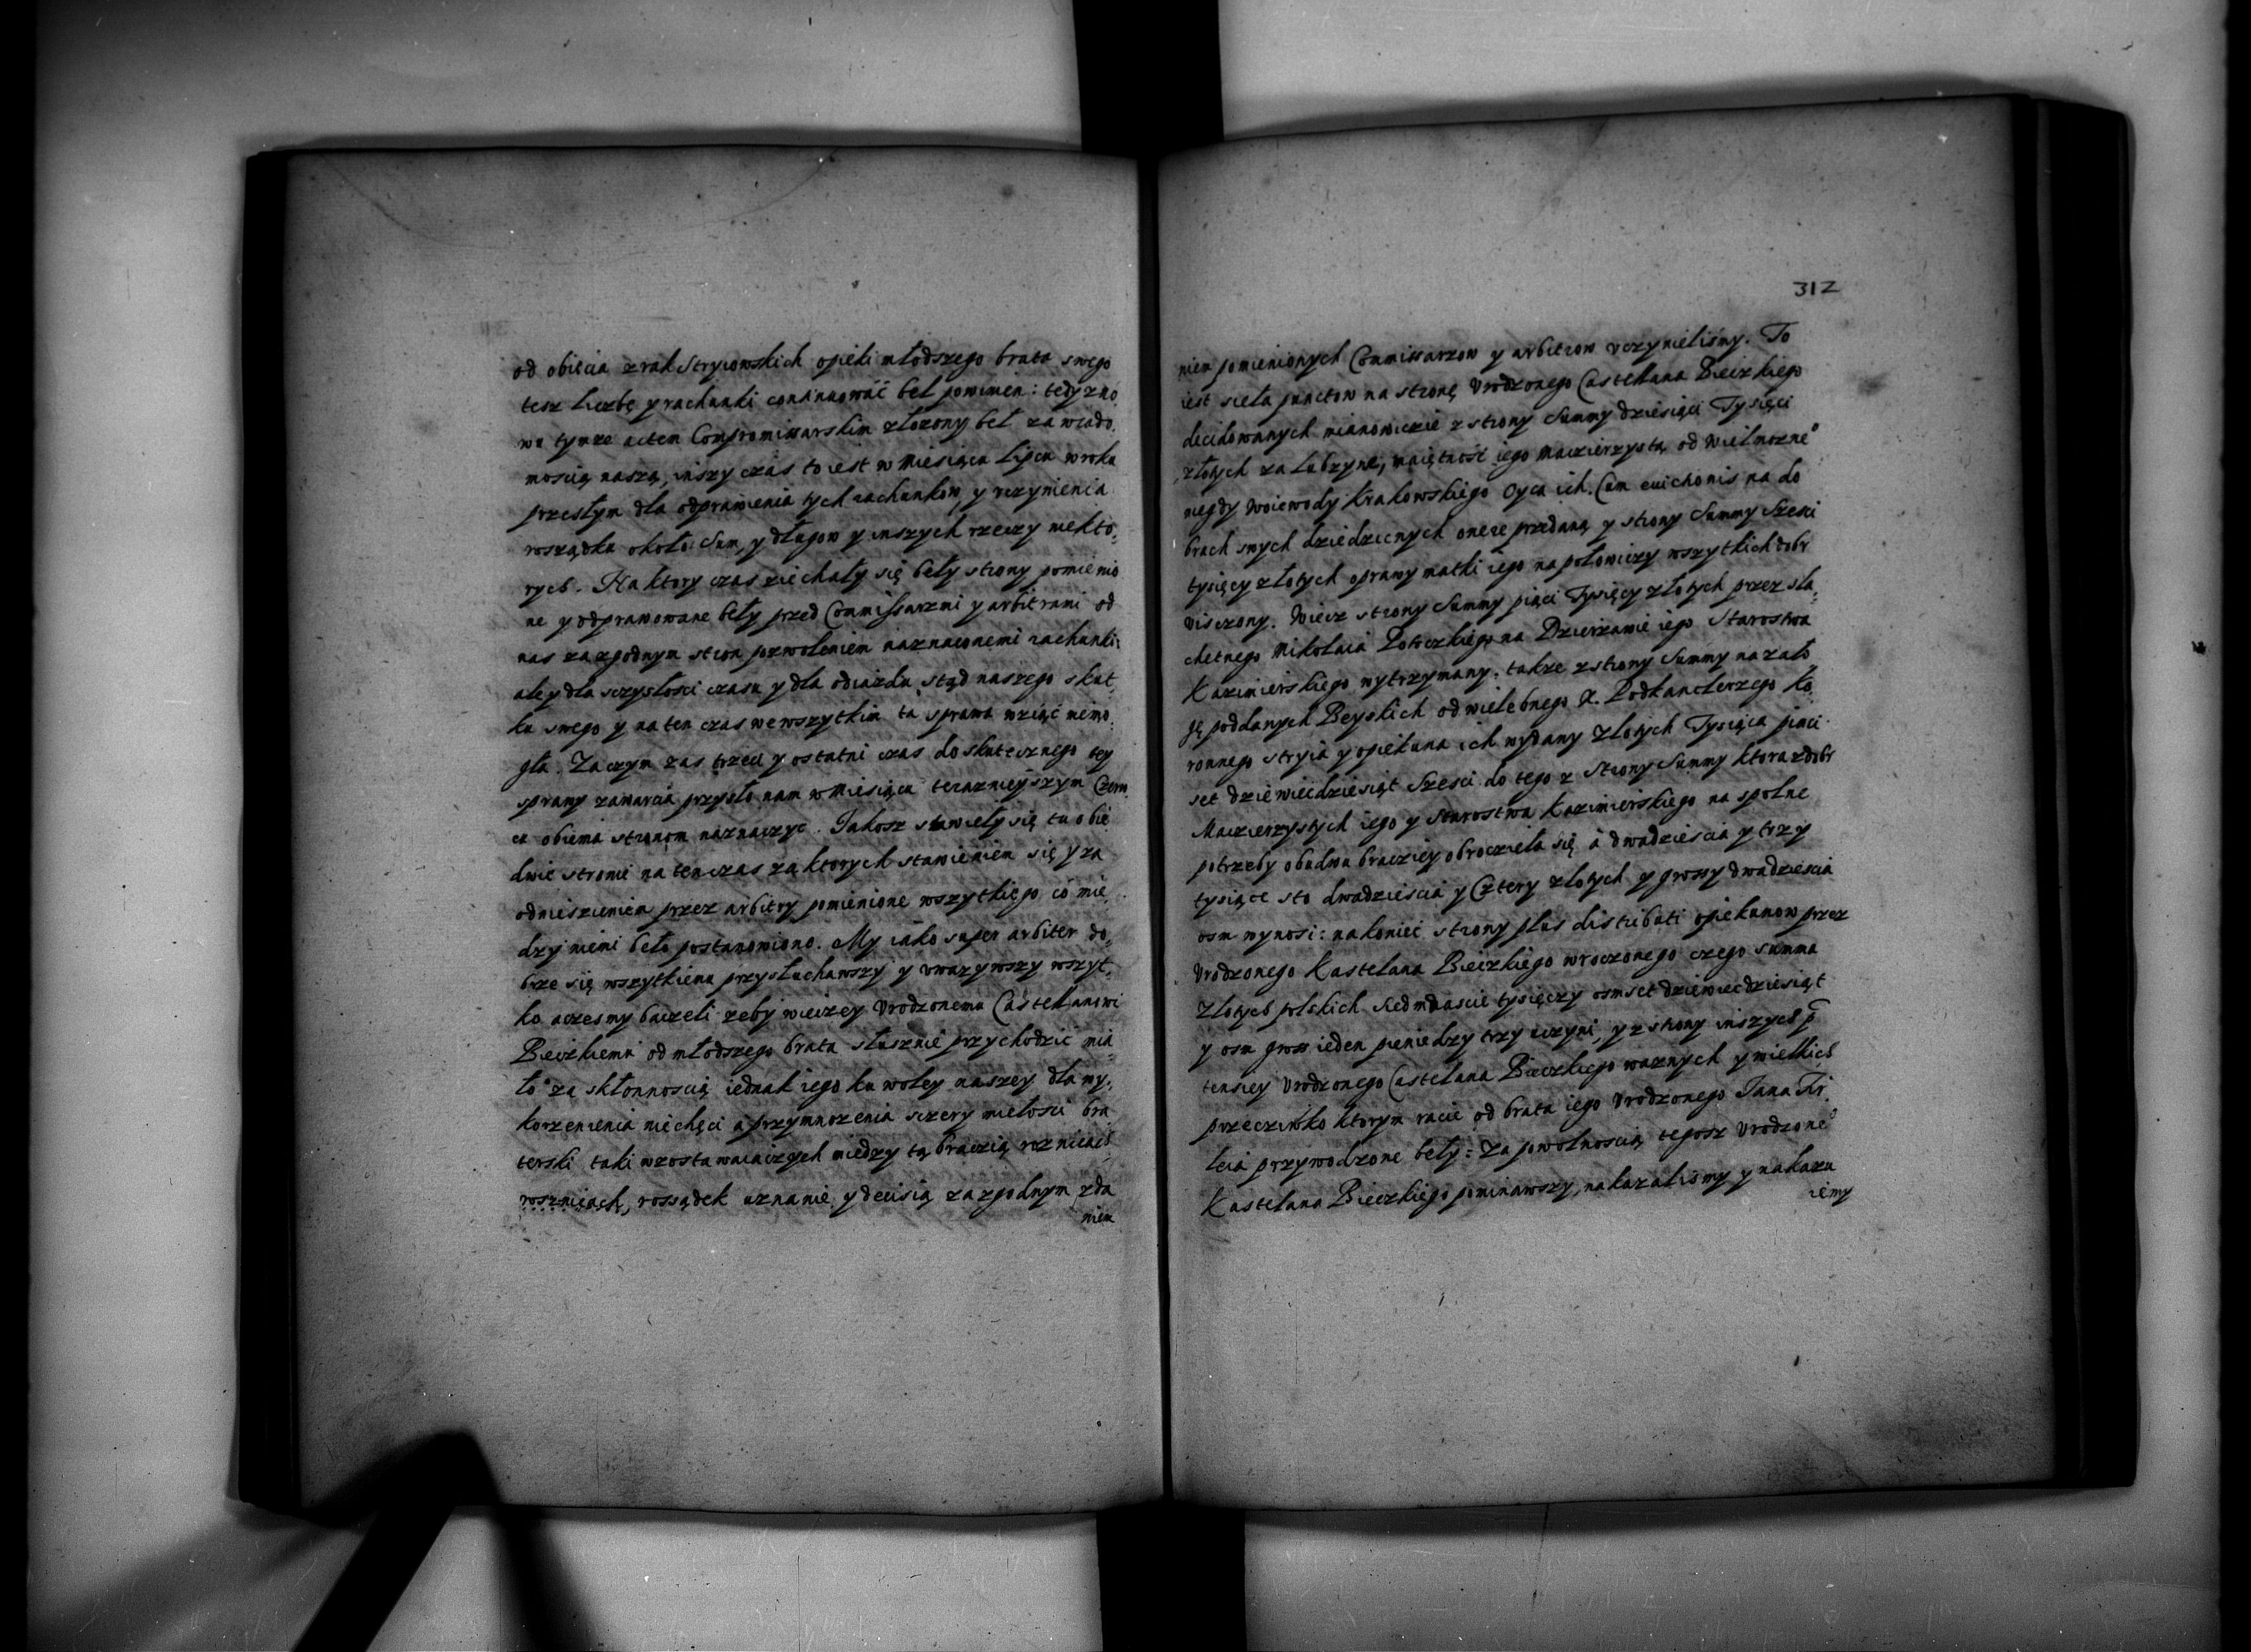 od obięcia z rąk Stryiowskich opieki młodszego brata swego
tesz liczbę y rachunki continuować beł powinien: tedy zno,
wu tymze actem Compromissarskim złozony beł za wiado,
moscią naszą, inszy czas to iest w Miesiącu Lipcu w roku
przesłym dla odprawienia tych rachunkow, y uczynienia
rosządku około Sum, y długow y inszych rzeczy niekto,
rych. Na ktory czas ziechały się beły strony pomienio
ne y odprawowane beły przed Commissarzmi y arbitrami od
nas za zgodnym stron pozwoleniem naznaconemi rachunki:
ale y dla sczysłosci czasu y dla odiazdu stąd naszego skut,
ku swego y na ten czas we wszytkim ta sprawa wziąć niemo,
gła. Zaczym zas trzeci y ostatni czas do skutecznego tey
sprawy zawarcia przyszło nam w Miesiącu terazniejszym Czerw,
cu obiema stronom naznaczyc. Jakosz stawieły się tu obie
dwie stronie na ten czas za ktorych stawieniem się y za
odniesieniem przez arbitry pomienione wszytkiego co mie,
dzy niemi beło postanowiono. My iako super arbiter do,
brze się wszytkiemu przysłuchawszy y uwazywszy wszyt,
ko aczesmy baczeli zeby wieczey Urodzonemu Castellanowi
Bieczkiemu od młodszego brata słusznie przychodzić mia
ło za skłonnoscią iednak iego ku woley naszey dla wy,
korzenienia niechęci a przymnozenia sczery miełosci bra
terski taki wzostawaiaczych miedzy tą bracią roznicach
roszniczach, rossądek uznanie y decisią za zgodnym zda
niem
312
niem pomienionych Commissarzow y arbitrow uczynieliśmy. To
iest sieła punctow na stronę Urodzonego Castellana Bieczkiego
decidowanych mianowiczie z strony Summy dziesiąci Tysięci
złotych za Lubzynę, maiętność iego Maczierzystą od Wielmozne°
niegdy Woiewody Krakowskiego Oyca ich. Cum euictionis na do
brach swych dziedzicnych onere przedaną y strony Summy Szesci
tysięcy złotych oprawy matki iego na połowiczy wszytkich dobr
wisczony. Wiecz strony Summy piąci Tysięcy złotych przez sla,
chetnego Mikołaia Potoczkiego na Dzierzawie iego Starostwa
Kazimierskiego wytrzymany. takze z strony Summy na zało
gę poddanych Beyskich od wielebnego X. Podkanclerzego Ko,
ronnego stryia y opiekuna ich wydany złotych Tysiąca piaci
set dziewiećdziesiąt Szesci do tego z Strony Summy ktora z dobr
Maczierzystych iego y Starostwa Kazimierskiego na społne
potrzeby obudwu bracziey obrocziela się a dwadziescia y trzy
tysiące sto dwadziescia y Cztery złotych y groszy dwadziescia
osm wynosi: nakoniec strony plus distributi opiekunow przez
Urodzonego Kastelana Bieczkiego wroczonego czego summa
Złotych polskich siedmnascie tysięczy osmset dziewiecdziesiąt
y osm gross ieden pieniedzy trzy uczyni, y z strony inszych p̃
tensiey Urodzonego Castelana Bieczkiego waznych y wielkich
przecziwko ktorym racie od brata iego Urodzonego Jana Fir,
leia przywodzone beły: Za powolnoscią tegosz Urodzone°
Kastelana Bieczkiego pominawszy, nakazalismy y nakazu
iemy